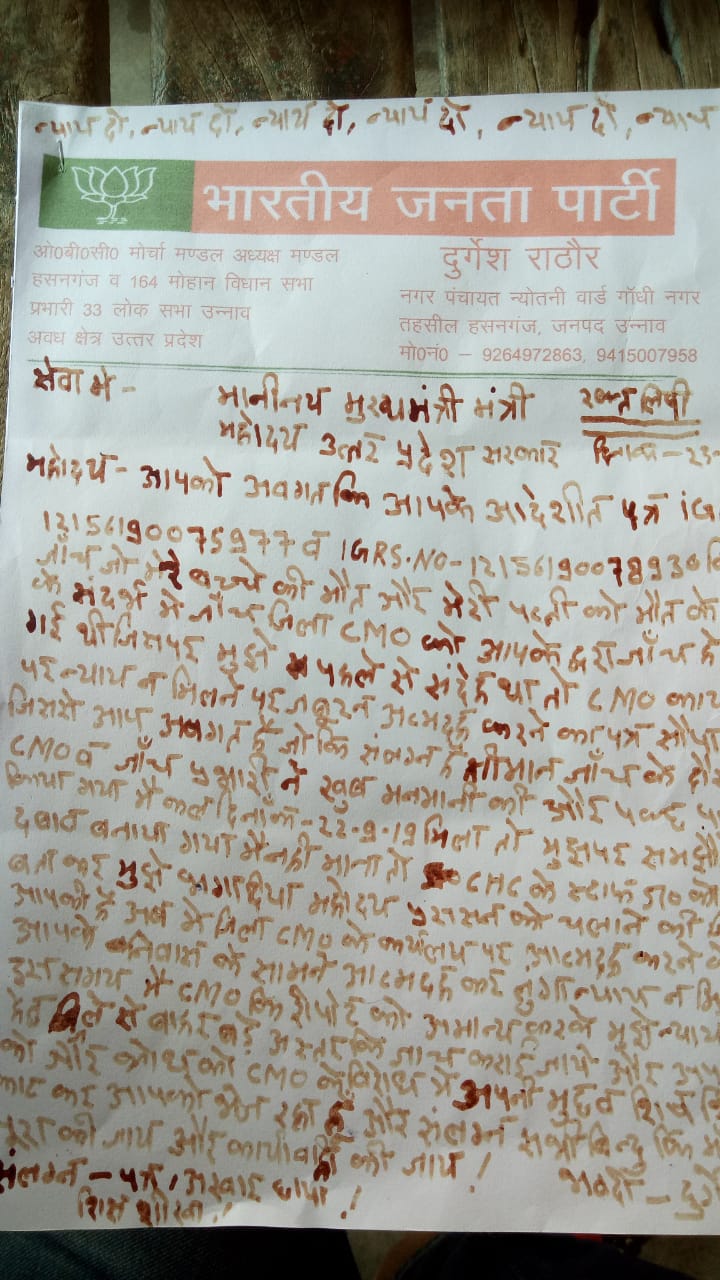 न्याय दो, न्याय दो, न्याय दो, न्याय दो, न्याय दो, न्याय
भारतीय जनता पार्टी
ओ0बी0सी0 मोर्चा मण्डल अध्यक्ष मण्डल
हसनगंज व 164 मोहान विधान सभा
प्रभारी 33 लोक सभा उन्नाव
अवध क्षेत्र उत्तर प्रदेश
दुर्गेश राठौर
नगर पंचायत न्योतनी वार्ड गाँधी नगर
तहसील हसनगंज, जनपद उन्नाव
मो0नं0 – 9264972863, 9415007958
सेवा मे -
मानीनय मुख्यमंत्री मंत्री
रक्त लिपी
महोदय उत्तर प्रदेश सरकार
दिनांक - 23-
महोदय - आपको अवगत कि आपके आदेशीत पत्र IG
12156190075977 व IGRS.NO-12156190078930
जाँच जो मेरे बच्चे की मौत और मेरी पत्नी की मौत के
के संदर्भ मे जाँच जिला CMO को आपके द्वरा जाँच
गई थी जिसपर मुझे पहले से संदेह था तो CMO
पर न्याय न मिलने पर जबूरन आत्मदाह करने का पत्र सौपा
जिससे आप अवगत है जो कि संलग्न है श्रीमान जाँच के दौ
CMO व जाँच प्रभारी ने खुब मनमानी की और
किया गया मै कल दिनाँक-22-9-19 मिला तो मुझपर समझौ
दबाव बनाया गया मैनही माना तो CHC के स्टाफ डा0 को
बता कर मुझे भगा दिया महोदय प्रससन को चलाने की
आपकी है अब मे जिला CMO के कर्यालय पर आत्मदह करने
आपके निवास के सामने आत्मदह कर लुगा न्याय न
इस समय मै CMO कि रीपोट को अमान्य करके मुझे न्याय
जिले से बाहर बड़े अस्तर कि जाच कराई जाये और
को और क्रोध को CMO के विरोध मे अपनी मुडव शिखा
काट कर आपको भेज रहा हूँ और संलग्न सभी बिन्दु कि
की जाय और कायवाही की जाय!
संलग्न – पत्र, अखबार छाया!
शिखा
भवदी – दुर्गे